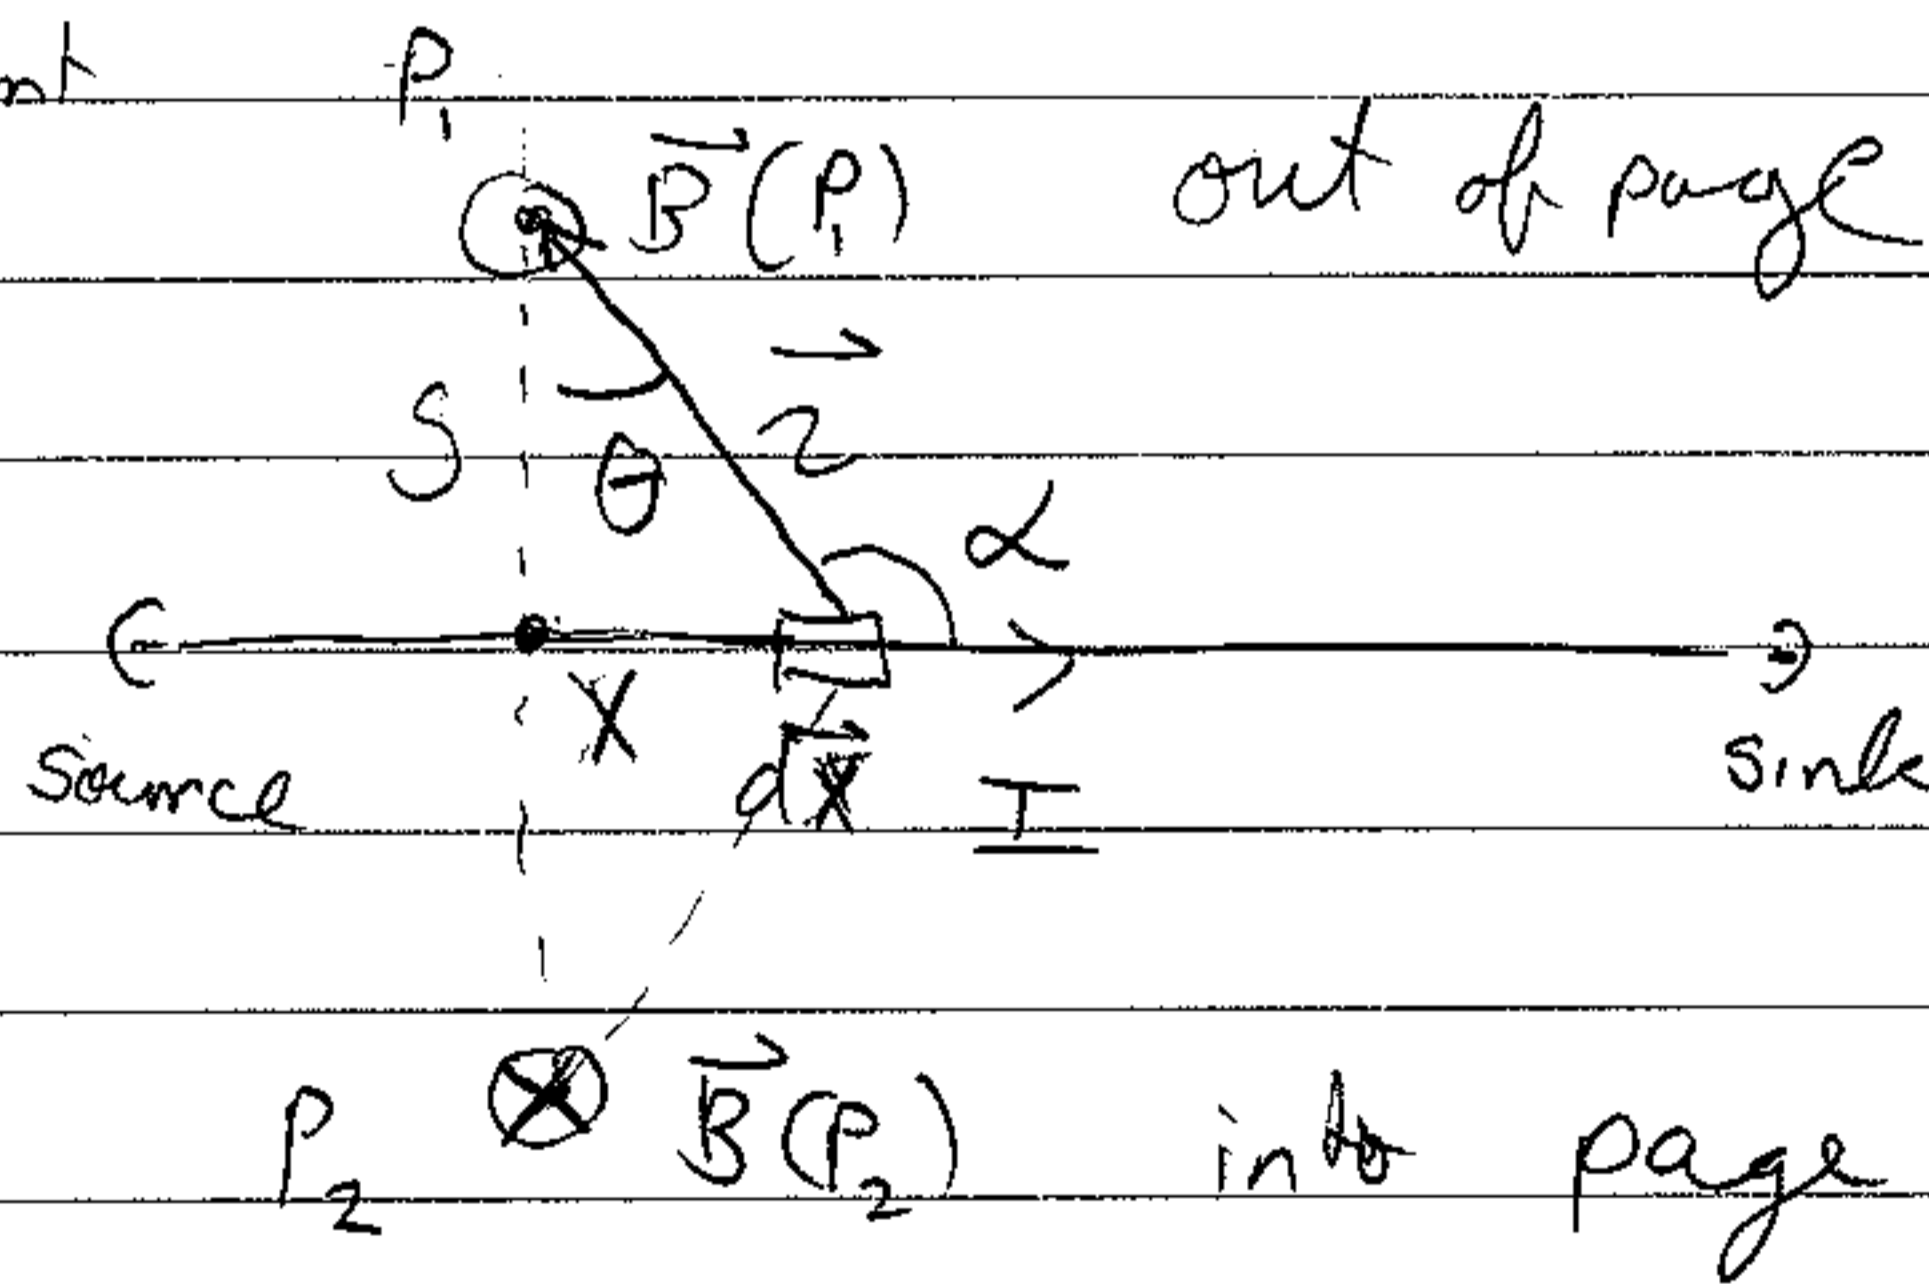 nt P₁
B⃗(P₁) out of page
S θ r⃗ α
Source X dX⃗ I sink
P₂ B⃗(P₂) into page